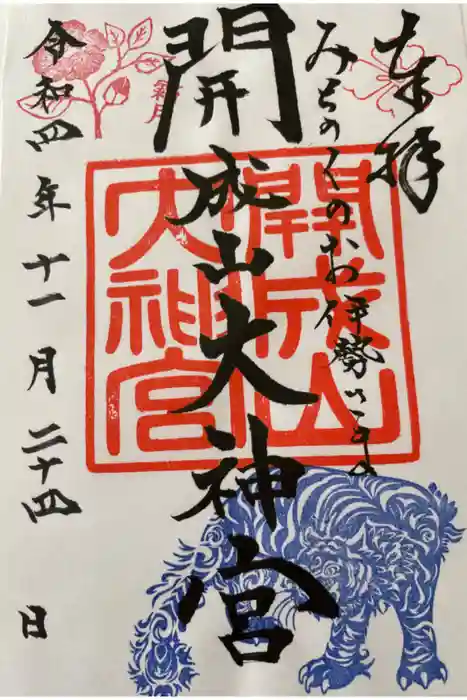 奉拝
みちのくのお伊勢さま
開成山大神宮
開成山
大神宮
霜月
令和四年十一月二十四日